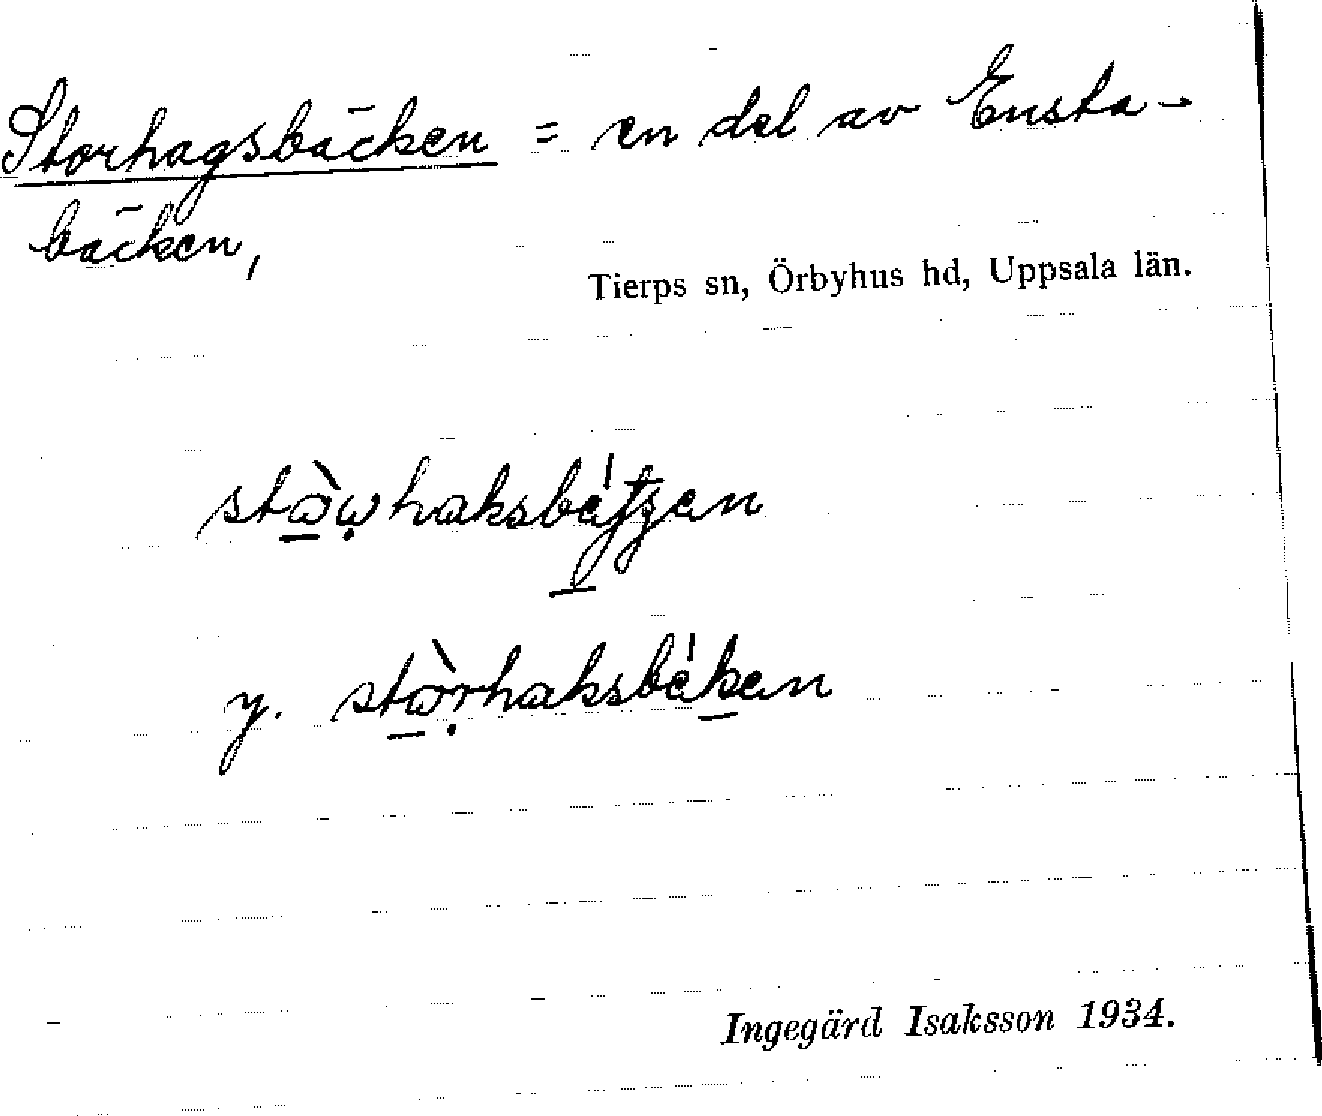 Storhagsbäcken = en del av Ensta-
bäcken,
Tierps sn, Örbyhus hd, Uppsala län.
y.
Ingegärd Isaksson 1934.